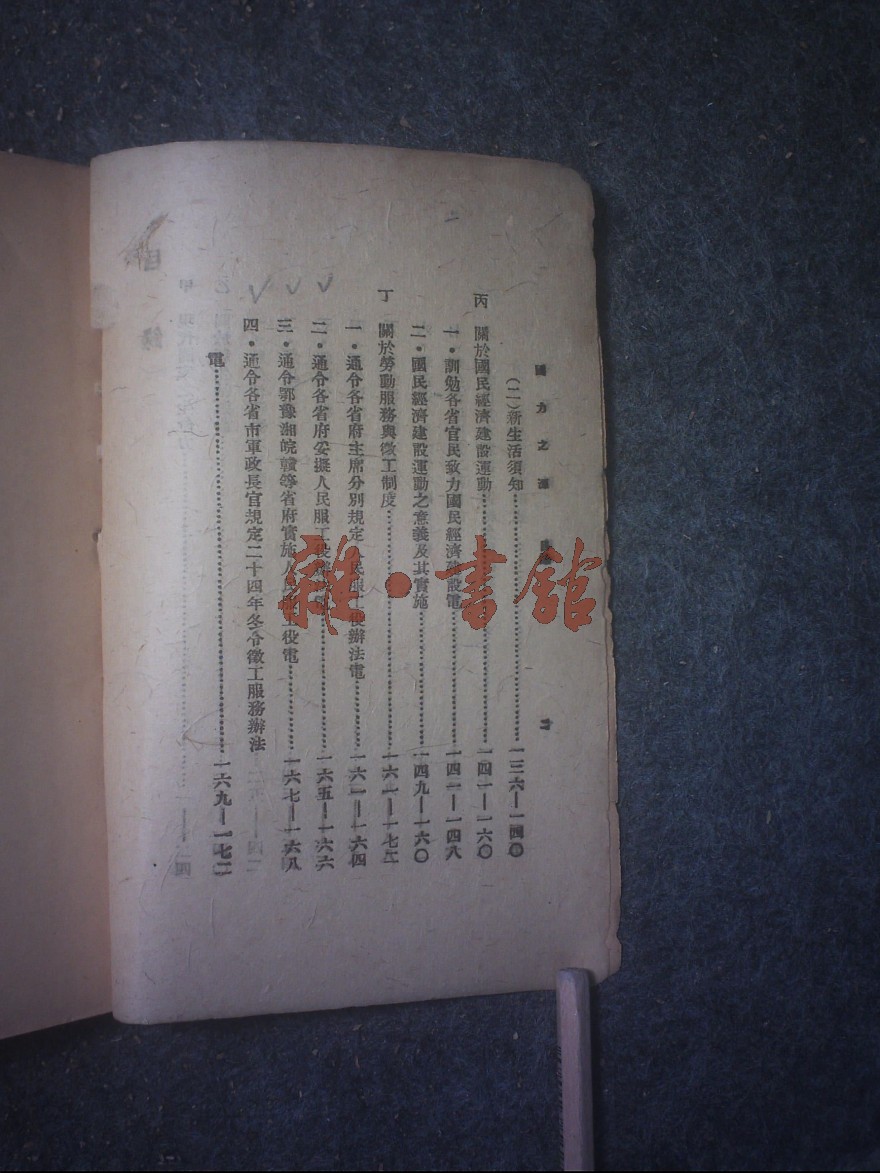 國力之源 目錄 七
(二)新生活須知……一三六—一四〇
丙 關於國民經濟建設運動……一四一—一六〇
一・訓勉各省官民致力國民經濟建設電……一四一—一四八
二・國民經濟建設運動之意義及其實施……一四九—一六〇
丁 關於勞動服務與徵工制度……一六一—一七二
一・通令各省府主席分別規定人民服工役辦法電……一六一—一六四
二・通令各省府妥擬人民服工役辦法電……一六五—一六六
三・通令鄂豫湘皖贛等省府實施人民服工役電……一六七—一六八
四・通令各省市軍政長官規定二十四年冬令徵工服務辦法
電……一六九—一七二
雜・書館